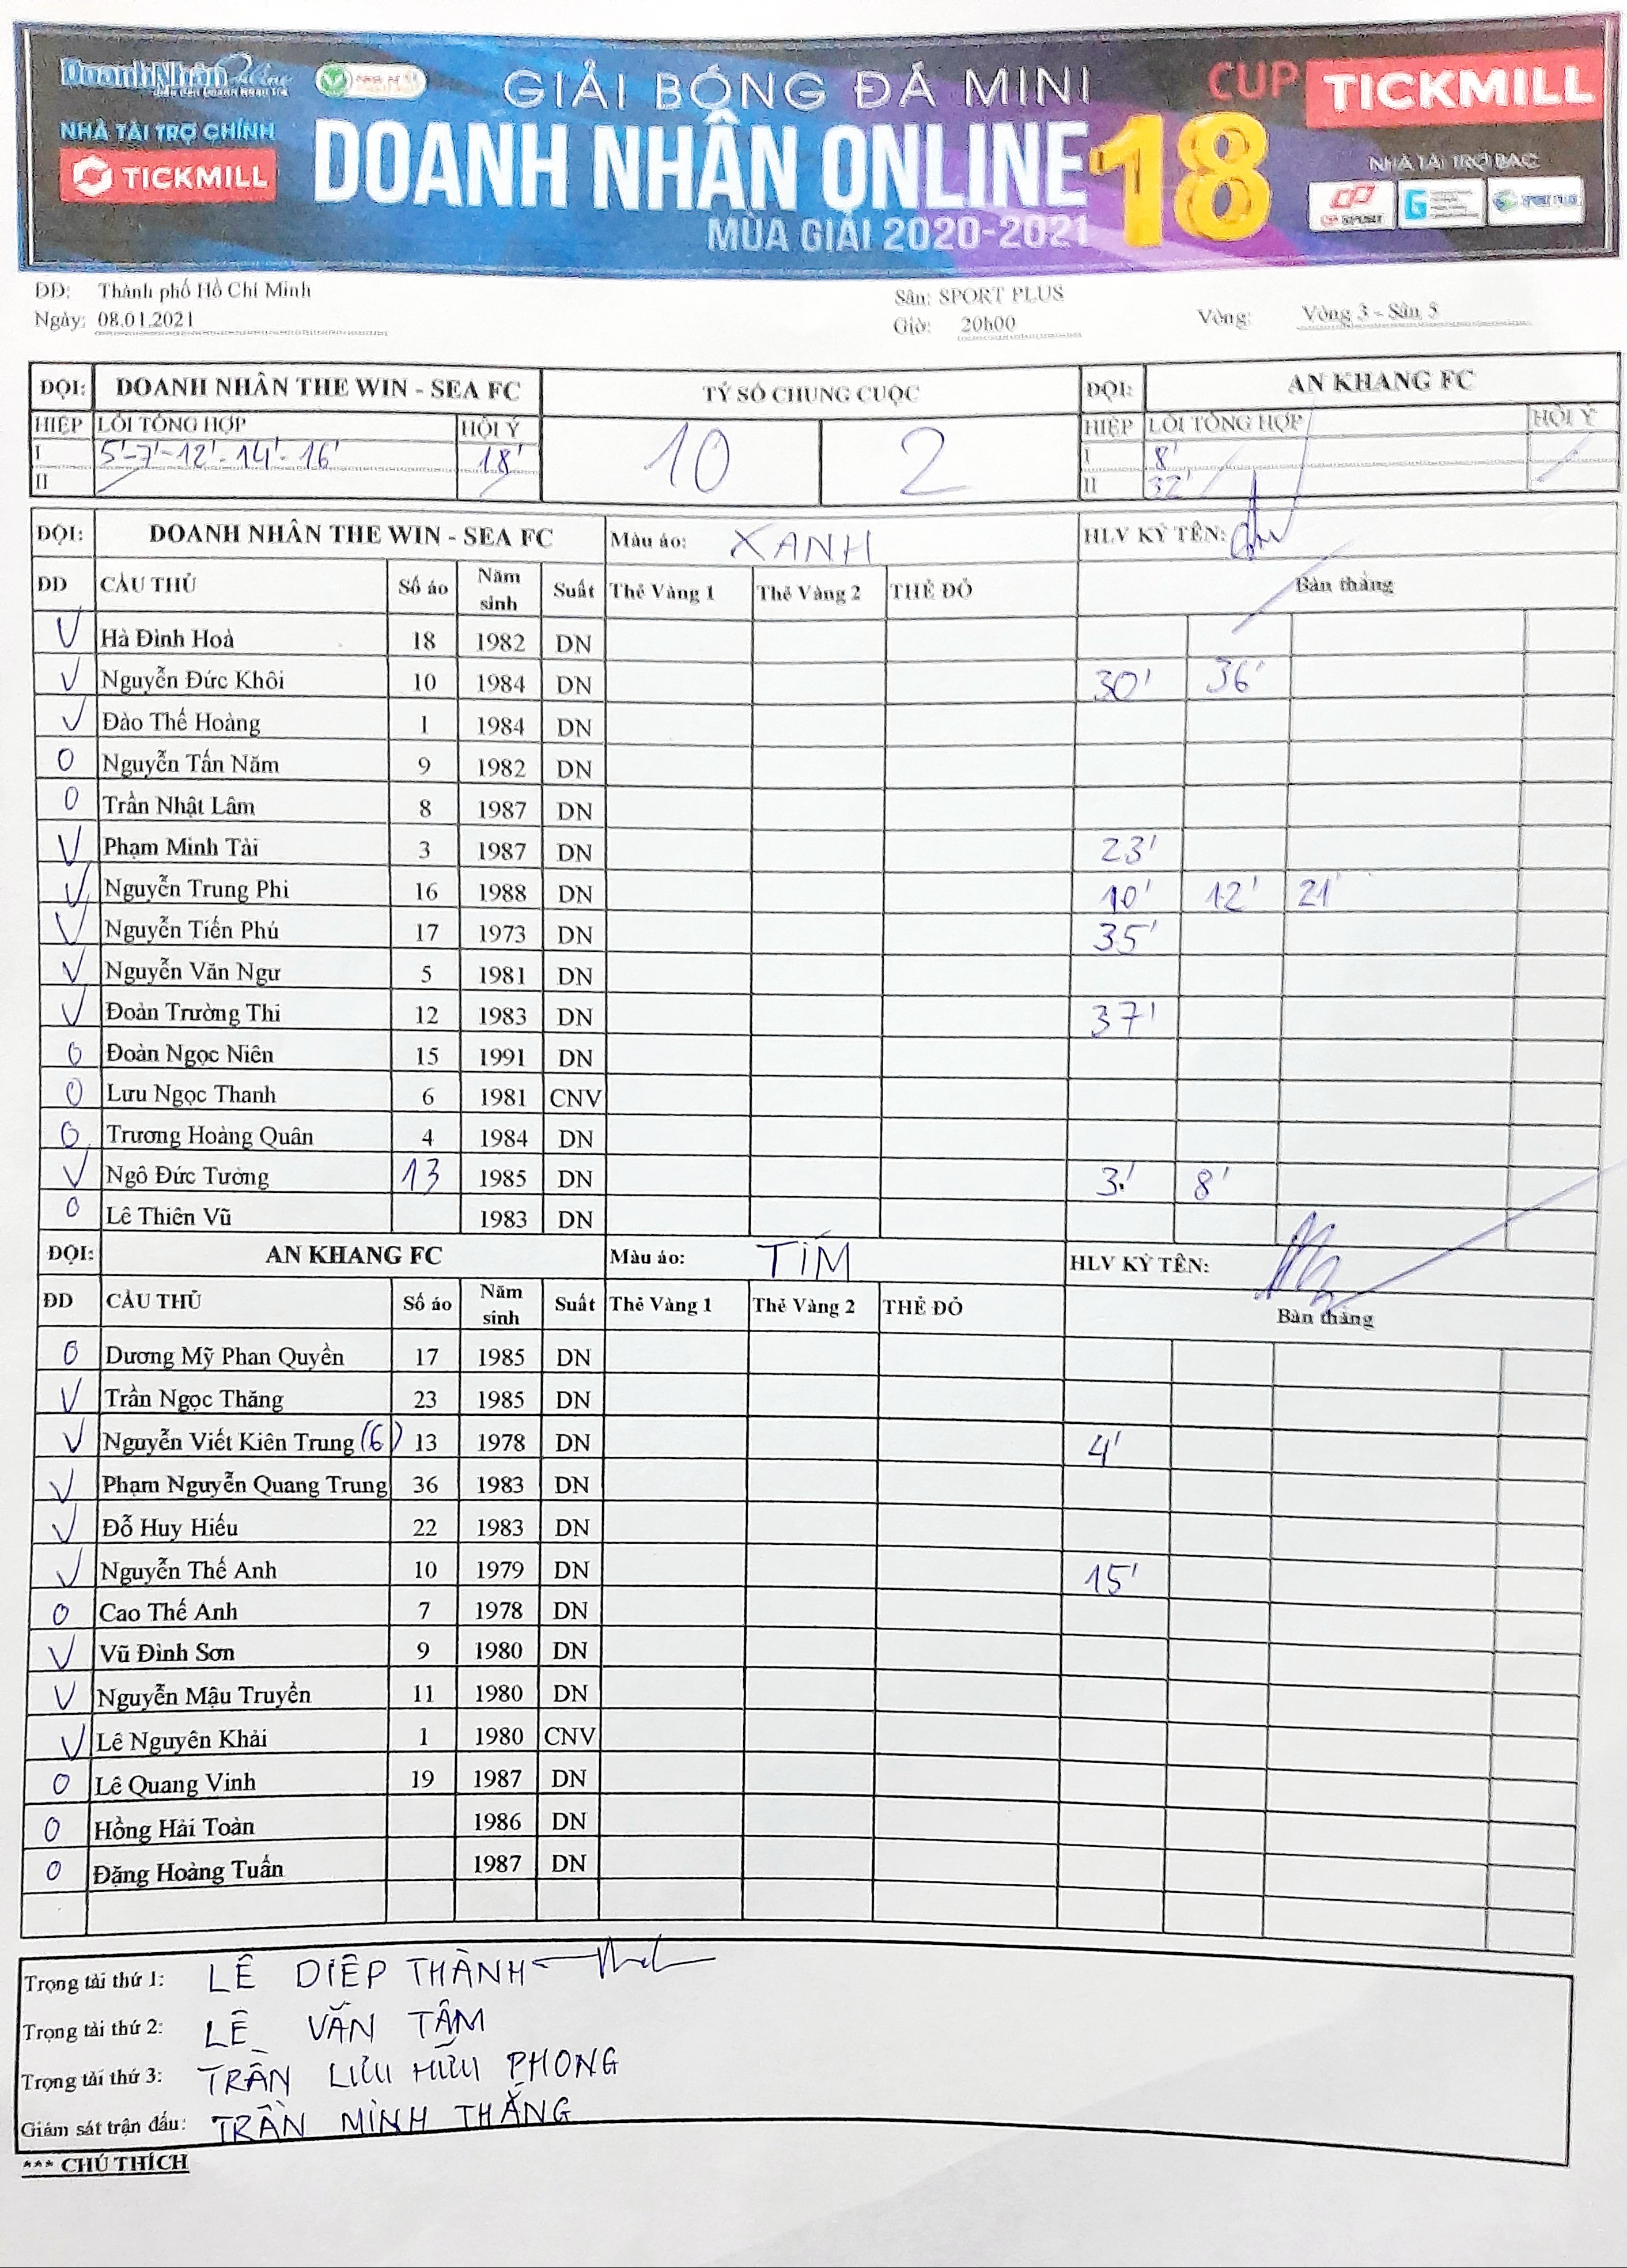 DoanhNhân Online
GIẢI BÓNG ĐÁ MINI
CUP TICKMILL
NHÀ TÀI TRỢ CHÍNH
TICKMILL
DOANH NHÂN ONLINE 18
MÙA GIẢI 2020-2021
NHÀ TÀI TRỢ BẠC
CP SPORT
ĐD: Thành phố Hồ Chí Minh
Sân: SPORT PLUS
Ngày: 08.01.2021
Giờ: 20h00
Vòng: Vòng 3 - Sân 5
ĐỘI: DOANH NHÂN THE WIN - SEA FC TỶ SỐ CHUNG CUỘC ĐỘI: AN KHANG FC
HIỆP LỖI TỔNG HỢP HỘI Ý 10 2 HIỆP LỖI TỔNG HỢP HỘI Ý
I 5'-7'-12'-14'-16' 18' I 8'
II II 32'
ĐỘI: DOANH NHÂN THE WIN - SEA FC Màu áo: XANH HLV KÝ TÊN:
ĐD CẦU THỦ Số áo Năm sinh Suất Thẻ Vàng 1 Thẻ Vàng 2 THẺ ĐỎ Bàn thắng
V Hà Đình Hoà 18 1982 DN
V Nguyễn Đức Khôi 10 1984 DN 30' 36'
V Đào Thế Hoàng 1 1984 DN
O Nguyễn Tấn Năm 9 1982 DN
O Trần Nhật Lâm 8 1987 DN
V Phạm Minh Tài 3 1987 DN 23'
V Nguyễn Trung Phi 16 1988 DN 10' 12' 21'
V Nguyễn Tiến Phú 17 1973 DN 35'
V Nguyễn Văn Ngư 5 1981 DN
V Đoàn Trường Thi 12 1983 DN 37'
O Đoàn Ngọc Niên 15 1991 DN
O Lưu Ngọc Thanh 6 1981 CNV
O Trương Hoàng Quân 4 1984 DN
V Ngô Đức Tường 13 1985 DN 3' 8'
O Lê Thiên Vũ 1983 DN
ĐỘI: AN KHANG FC Màu áo: TÍM HLV KÝ TÊN:
ĐD CẦU THỦ Số áo Năm sinh Suất Thẻ Vàng 1 Thẻ Vàng 2 THẺ ĐỎ Bàn thắng
O Dương Mỹ Phan Quyền 17 1985 DN
V Trần Ngọc Thăng 23 1985 DN
V Nguyễn Viết Kiên Trung (6) 13 1978 DN 4'
V Phạm Nguyễn Quang Trung 36 1983 DN
V Đỗ Huy Hiếu 22 1983 DN
V Nguyễn Thế Anh 10 1979 DN 15'
O Cao Thế Anh 7 1978 DN
V Vũ Đình Sơn 9 1980 DN
V Nguyễn Mậu Truyền 11 1980 DN
V Lê Nguyên Khải 1 1980 CNV
O Lê Quang Vinh 19 1987 DN
O Hồng Hải Toàn 1986 DN
O Đặng Hoàng Tuấn 1987 DN
Trọng tài thứ 1: LÊ DIỆP THÀNH
Trọng tài thứ 2: LÊ VĂN TÂM
Trọng tài thứ 3: TRẦN LƯU HỮU PHONG
Giám sát trận đấu: TRẦN MINH THẮNG
*** CHÚ THÍCH